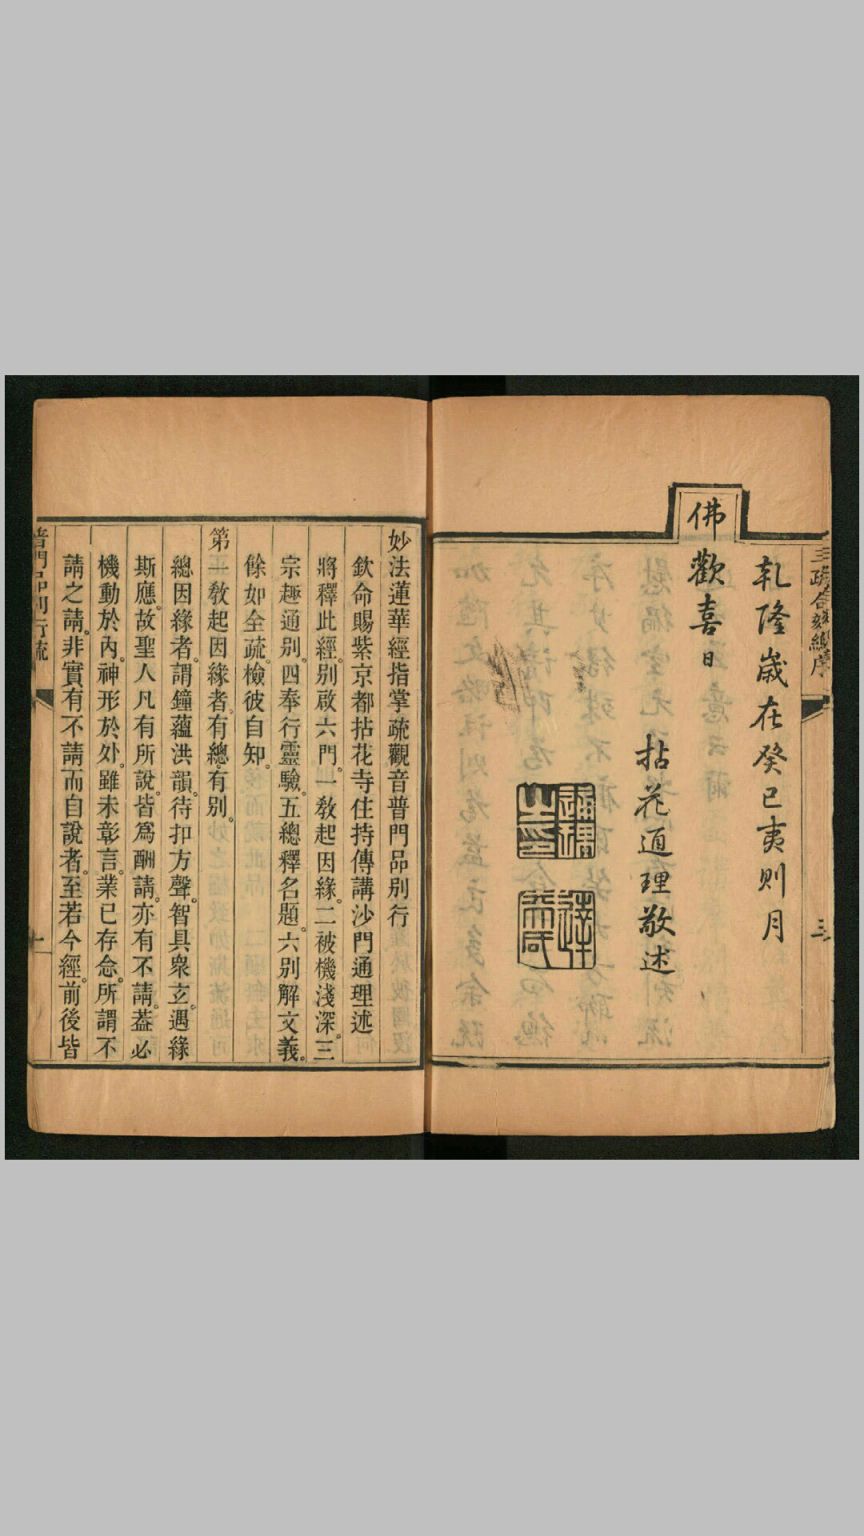 三疏合刻總序
三
乾隆歲在癸巳夷則月
佛歡喜日
拈花通理敬述
妙法蓮華經指掌疏觀音普門品別行
欽命賜紫京都拈花寺住持傳講沙門通理述
將釋此經。別啟六門。一敎起因緣。二被機淺深。三
宗趣通別。四奉行靈驗。五總釋名題。六別解文義。
餘如全疏。檢彼自知。
第一敎起因緣者。有總。有別。
總因緣者。謂鐘蘊洪韻。待扣方聲。智具衆玄。遇緣
斯應。故聖人凡有所說。皆爲酬請。亦有不請。葢必
機動於內。神形於外。雖未彰言。業已存念。所謂不
請之請。非實有不請而自說者。至若今經。前後皆
普門品別行疏
一